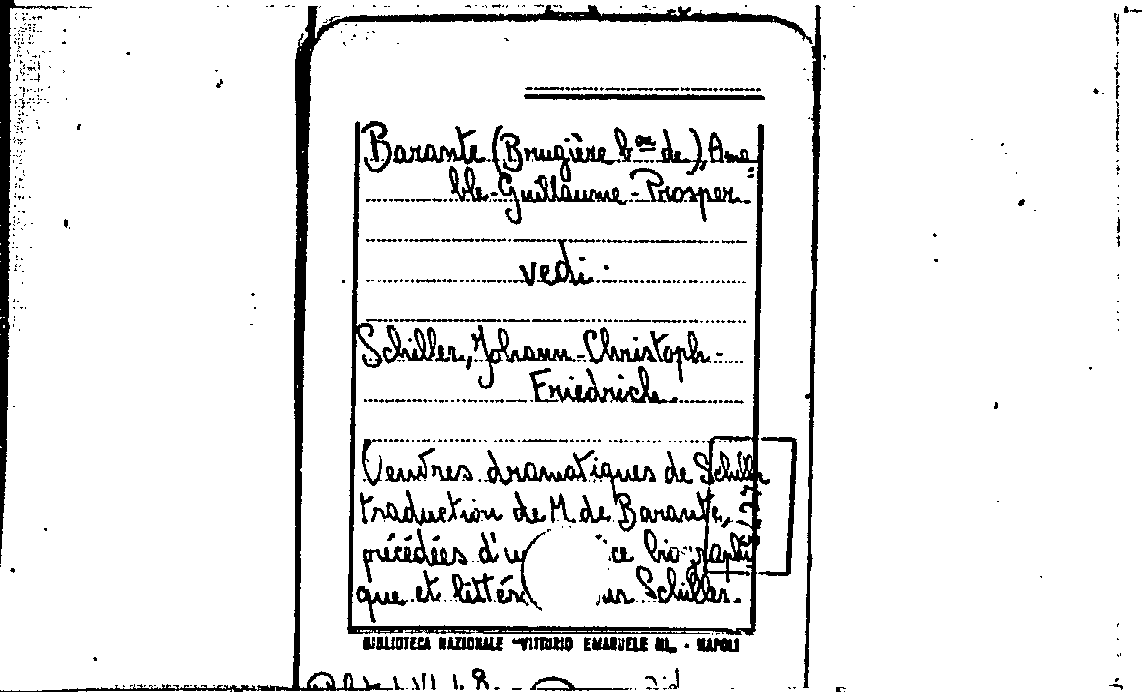 Barante (Brugière b.on de), Ama
ble-Guillaume-Prosper.
vedi.
Schiller, Johann-Christoph-
Friedrich.
Oeuvres dramatiques de Schiller
traduction de M. de Barante,
précédées d'u ce biographi
que et littér ur Schiller.
BIBLIOTECA NAZIONALE "VITTORIO EMANUELE III„ - NAPOLI